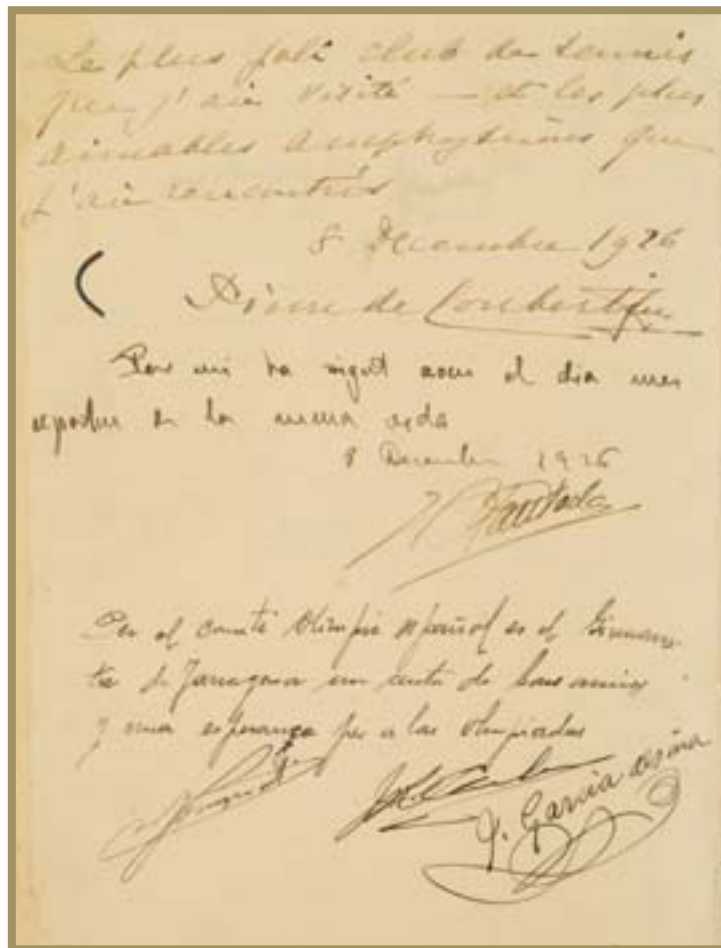 Le plus joli club de tennis
que j'aie visité — et les plus
aimables amphytrions que
j'aie rencontrés
8 Decembre 1926
Pierre de Coubertin
Per mi ha sigut avui el dia mes
de la meva vida
8 Decembre 1926
Per el comité Olimpic español es el Gimnas-
tic de Tarragona un centre de bons amics
y una esperança per a las olimpiadas
J. Garcia Alsina